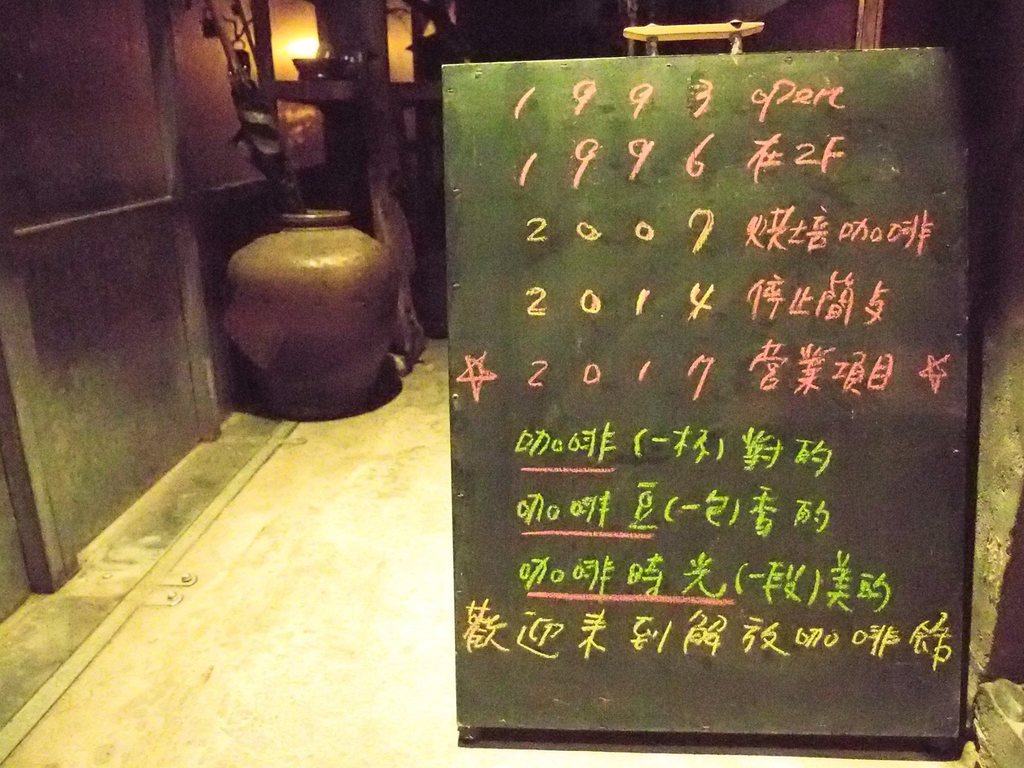 1993 open
1996 在2F
2007 烘培咖啡
2014 停止簡多
☆ 2017 營業項目 ☆
咖啡(一杯)對的
咖啡豆(一包)香的
咖啡時光(一段)美的
歡迎來到解放咖啡館